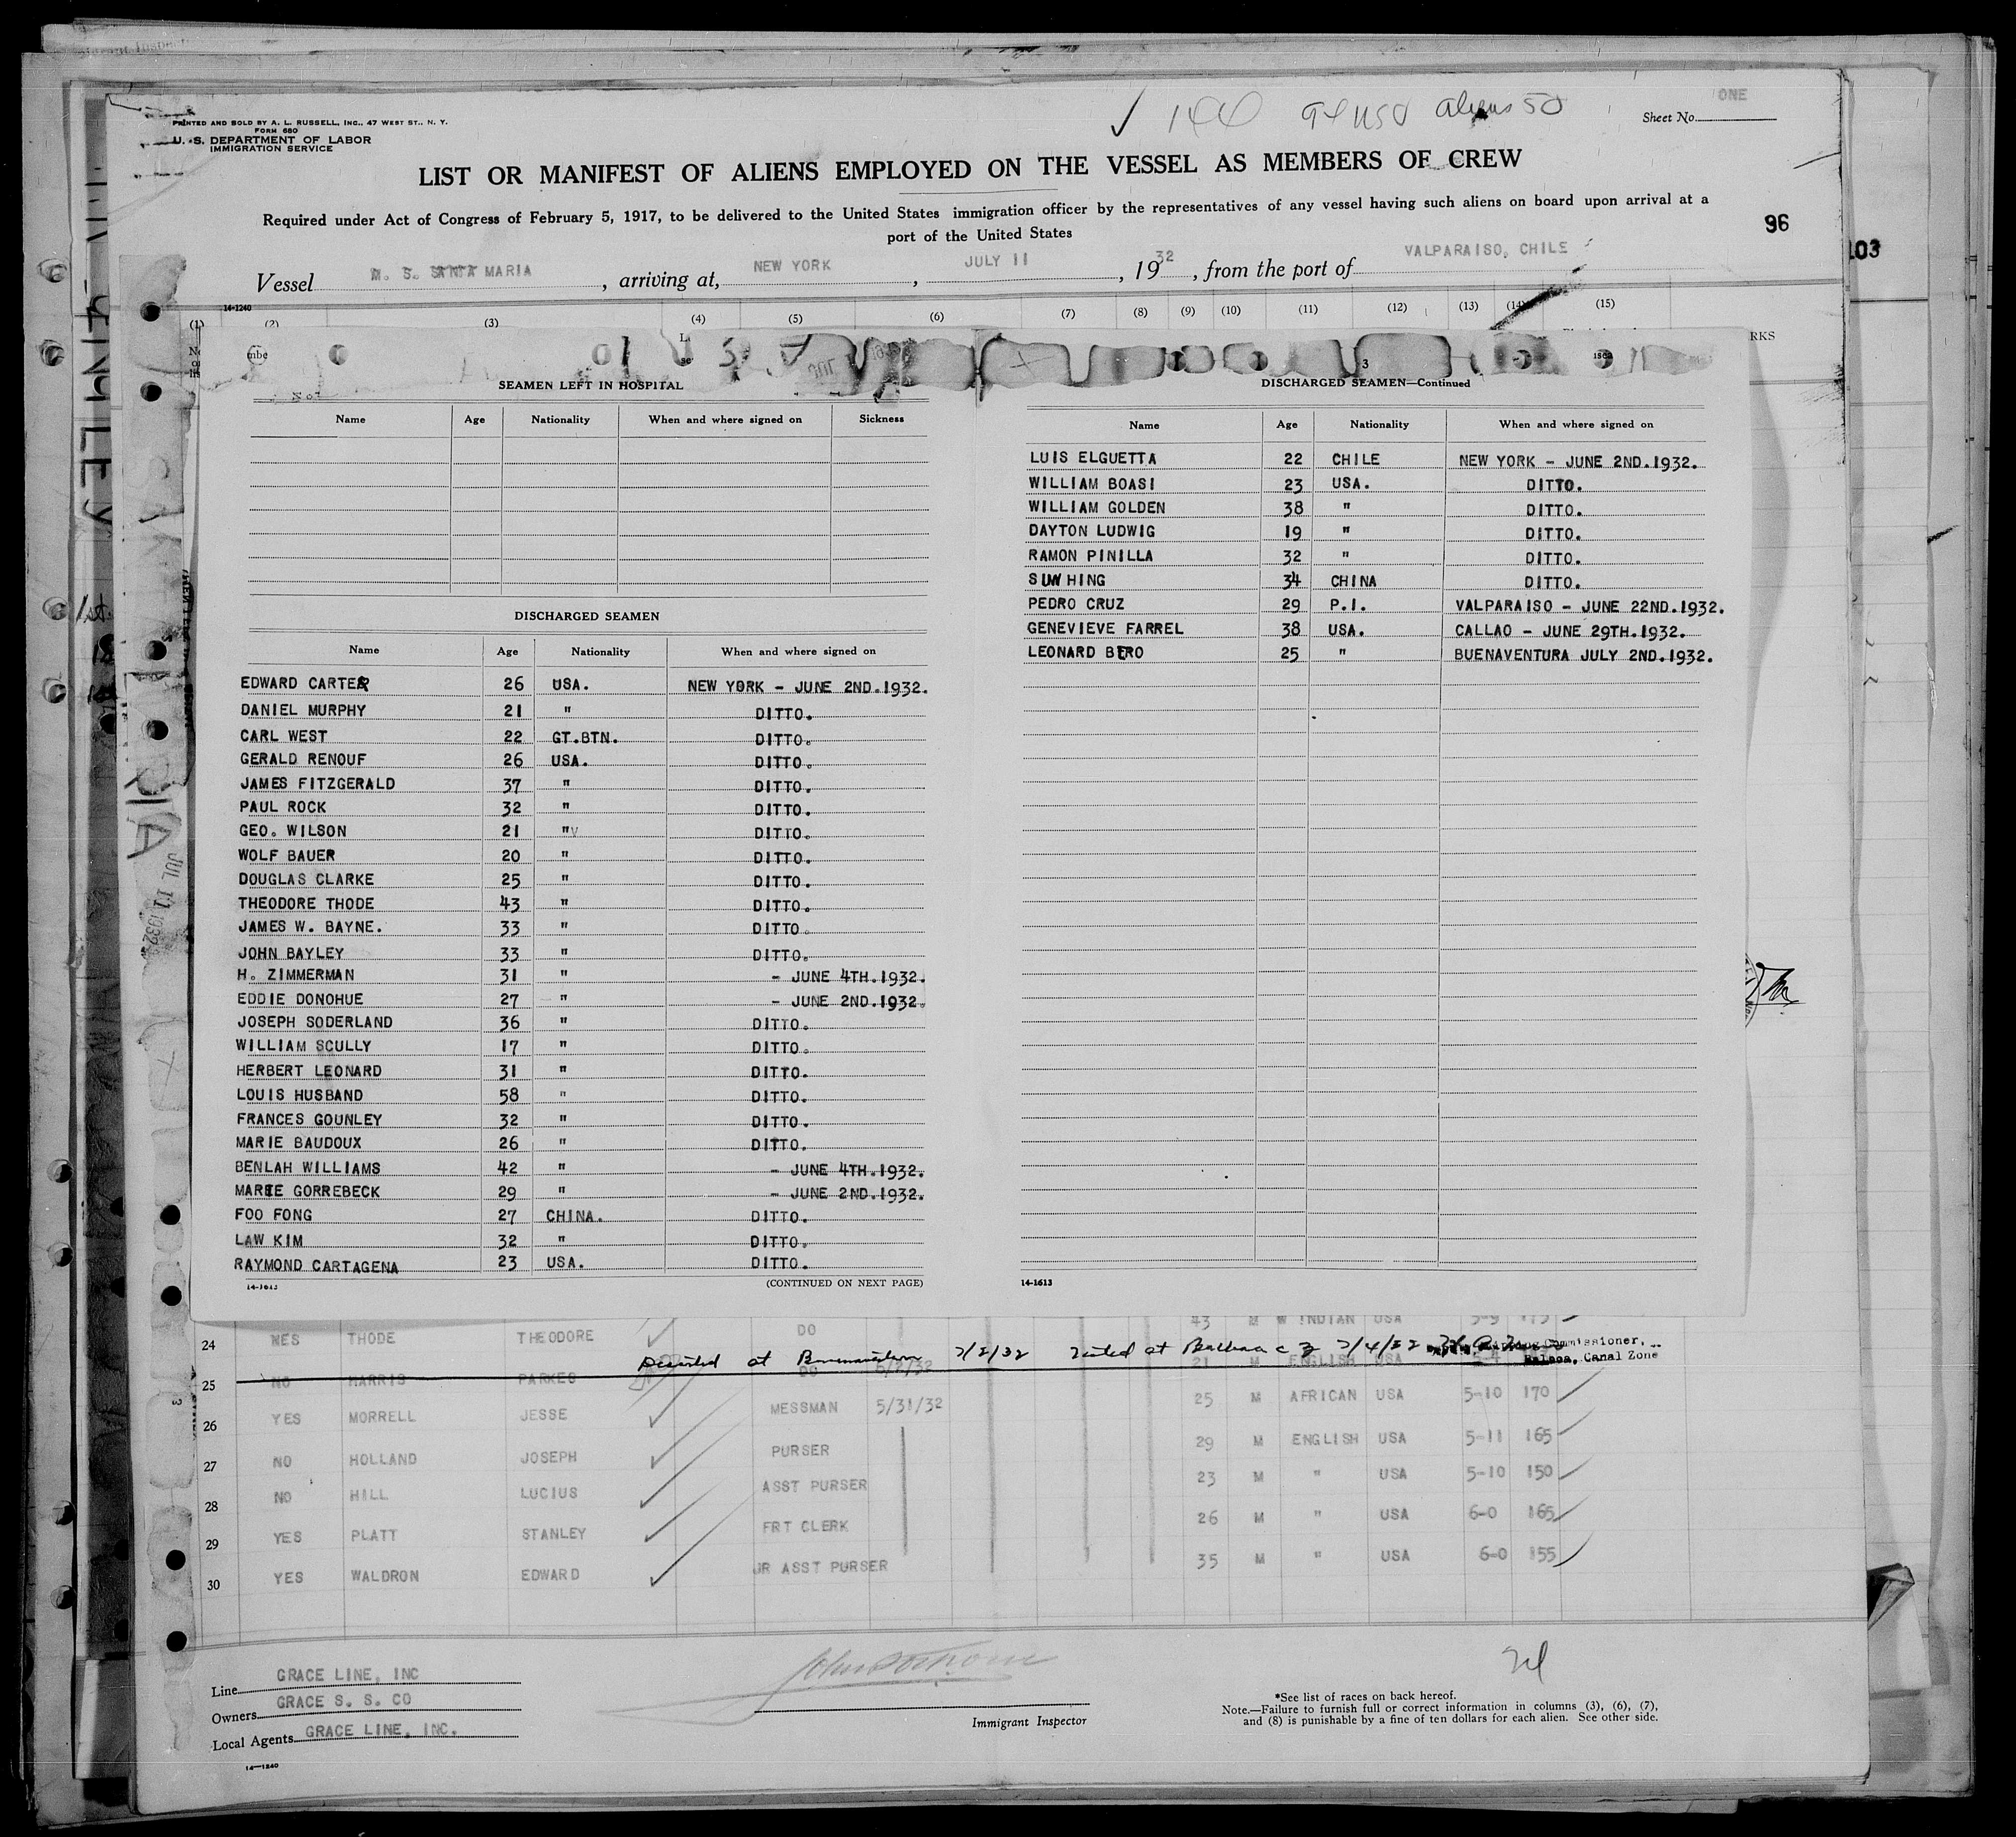 PRINTED AND SOLD BY A. L. RUSSELL, INC., 47 WEST ST., N. Y.
FORM 680
U. S. DEPARTMENT OF LABOR
IMMIGRATION SERVICE
aliens 50
Sheet No. ONE
LIST OR MANIFEST OF ALIENS EMPLOYED ON THE VESSEL AS MEMBERS OF CREW
Required under Act of Congress of February 5, 1917, to be delivered to the United States immigration officer by the representatives of any vessel having such aliens on board upon arrival at a
port of the United States
96
103
Vessel M. S. SANTA MARIA, arriving at, NEW YORK, JULY 11, 1932, from the port of VALPARAISO, CHILE
14-1240
(1) (2) (3) (4) (5) (6) (7) (8) (9) (10) (11) (12) (13) (14) (15)
RKS
SEAMEN LEFT IN HOSPITAL
Name Age Nationality When and where signed on Sickness
DISCHARGED SEAMEN
Name Age Nationality When and where signed on
EDWARD CARTER 26 USA. NEW YORK - JUNE 2ND.1932.
DANIEL MURPHY 21 " DITTO.
CARL WEST 22 GT.BTN. DITTO.
GERALD RENOUF 26 USA. DITTO.
JAMES FITZGERALD 37 " DITTO.
PAUL ROCK 32 " DITTO.
GEO. WILSON 21 " DITTO.
WOLF BAUER 20 " DITTO.
DOUGLAS CLARKE 25 " DITTO.
THEODORE THODE 43 " DITTO.
JAMES W. BAYNE. 33 " DITTO.
JOHN BAYLEY 33 " DITTO.
H. ZIMMERMAN 31 " - JUNE 4TH.1932.
EDDIE DONOHUE 27 " - JUNE 2ND.1932.
JOSEPH SODERLAND 36 " DITTO.
WILLIAM SCULLY 17 " DITTO.
HERBERT LEONARD 31 " DITTO.
LOUIS HUSBAND 58 " DITTO.
FRANCES GOUNLEY 32 " DITTO.
MARIE BAUDOUX 26 " DITTO.
BENLAH WILLIAMS 42 " - JUNE 4TH.1932.
MARIE GORREBECK 29 " - JUNE 2ND.1932.
FOO FONG 27 CHINA. DITTO.
LAW KIM 32 " DITTO.
RAYMOND CARTAGENA 23 USA. DITTO.
14-1613 (CONTINUED ON NEXT PAGE)
DISCHARGED SEAMEN—Continued
Name Age Nationality When and where signed on
LUIS ELGUETTA 22 CHILE NEW YORK - JUNE 2ND.1932.
WILLIAM BOASI 23 USA. DITTO.
WILLIAM GOLDEN 38 " DITTO.
DAYTON LUDWIG 19 " DITTO.
RAMON PINILLA 32 " DITTO.
SUW HING 34 CHINA DITTO.
PEDRO CRUZ 29 P.I. VALPARAISO - JUNE 22ND.1932.
GENEVIEVE FARREL 38 USA. CALLAO - JUNE 29TH.1932.
LEONARD BERO 25 " BUENAVENTURA JULY 2ND.1932.
14-1613
JUL 11 1932
24 YES THODE THEODORE DO 43 M W INDIAN USA 5-9 175
Deserted at Buenaventura 7/2/32 at Balboa C Z 7/4/32 Shipping Commissioner, Balboa, Canal Zone
25 NO HARRIS PARKES DO 6/2/32 21 M ENGLISH USA
26 YES MORRELL JESSE MESSMAN 5/31/32 25 M AFRICAN USA 5-10 170
27 NO HOLLAND JOSEPH PURSER 29 M ENGLISH USA 5-11 165
28 NO HILL LUCIUS ASST PURSER 23 M " USA 5-10 150
29 YES PLATT STANLEY FRT CLERK 26 M " USA 6-0 165
30 YES WALDRON EDWARD JR ASST PURSER 35 M " USA 6-0 155
Line GRACE LINE, INC
Owners GRACE S. S. CO
Local Agents GRACE LINE, INC.
14-1240
Immigrant Inspector
*See list of races on back hereof.
Note.—Failure to furnish full or correct information in columns (3), (6), (7),
and (8) is punishable by a fine of ten dollars for each alien. See other side.